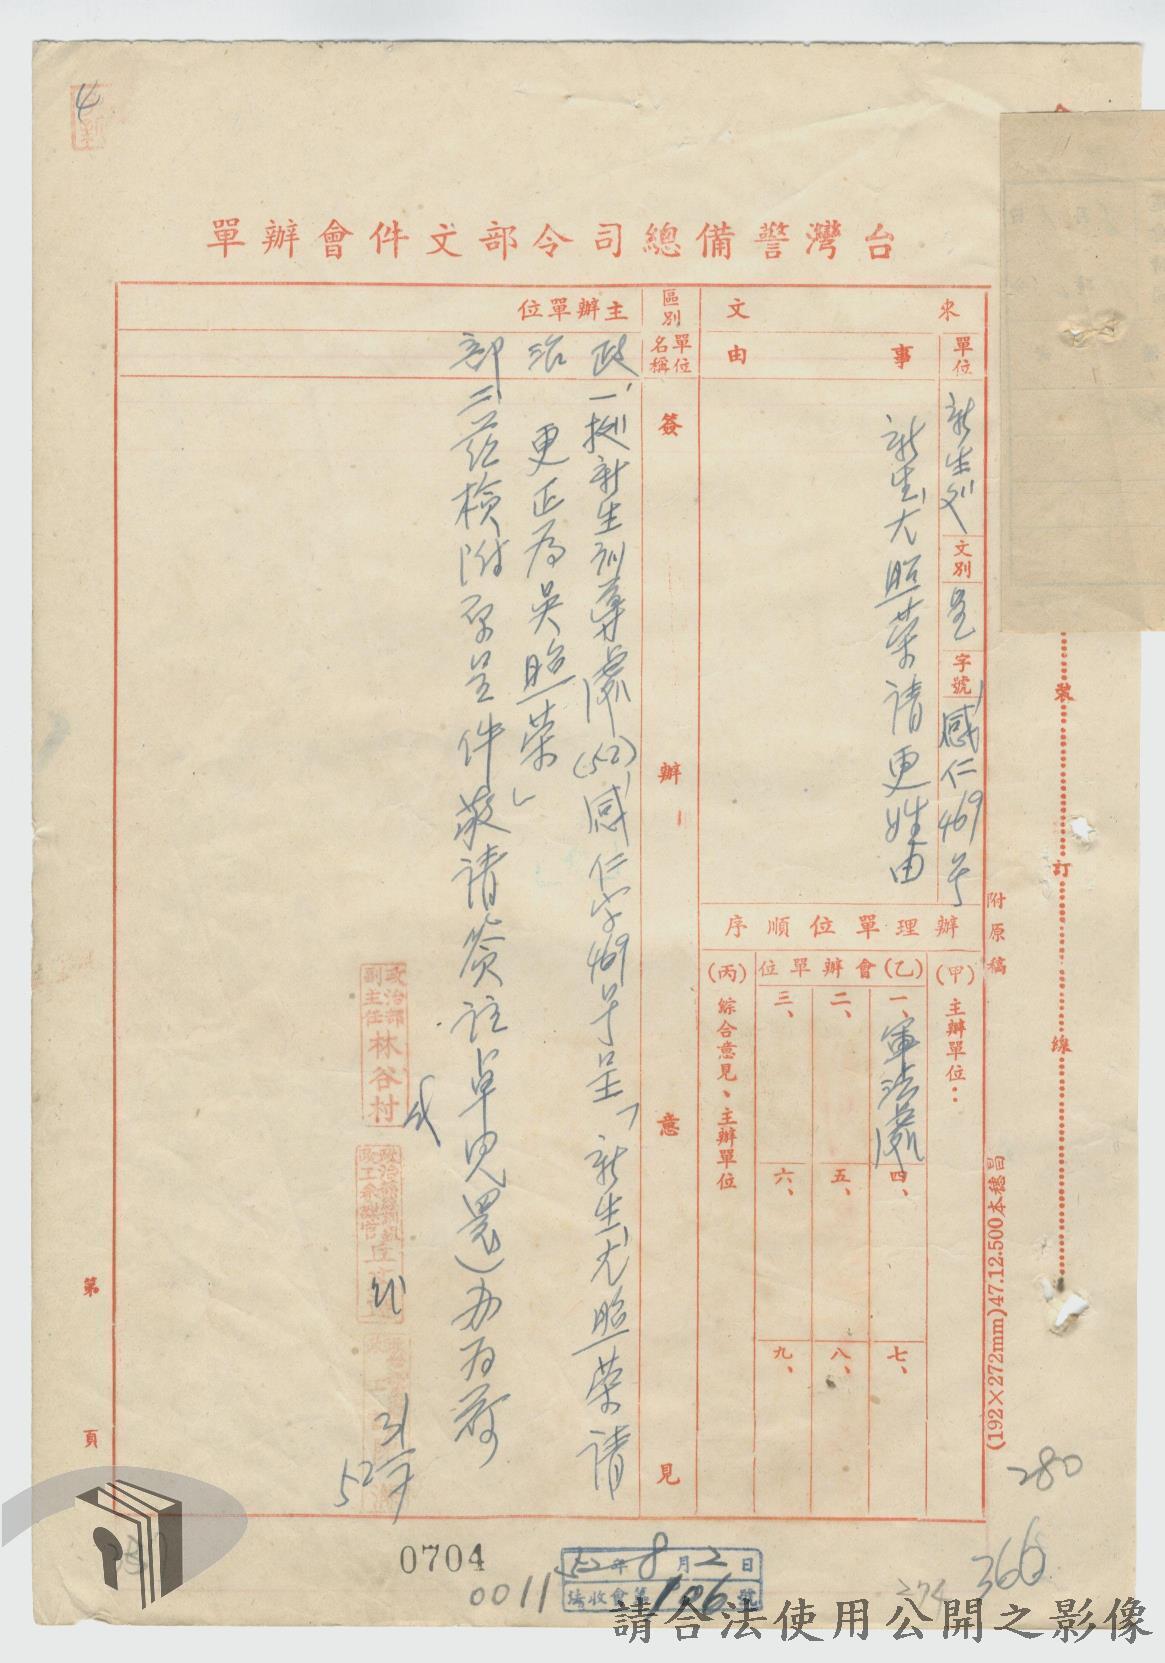 台灣警備總司令部文件會辦單
來文
單位
新生處
文別
呈
字號
感仁469號
事由
新生尤照荣請更姓由
辦理單位順序
(甲)主辦單位：
(乙)會辦單位
一、軍法處
二、
三、
四、
五、
六、
七、
八、
九、
(丙)綜合意見、主辦單位
區別
單位名稱
簽辦意見
主辦單位
政治部
一、據新生訓導處(52)感仁字469号呈「新生尤照荣請
更正為吳照荣」
二、茲檢附原呈件敬請簽註卓見還办为荷
政治部副主任林谷村
52
31
附原稿
裝訂線
(192×272mm)47.12.500本總昌
第頁
4
280
366
274
0704
0011
52年8月2日
收會第196號
請合法使用公開之影像